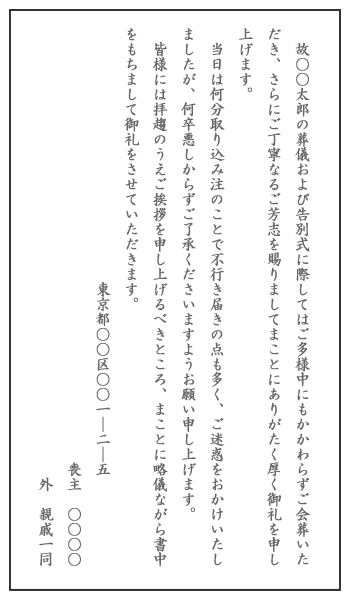 故〇〇太郎の葬儀および告別式に際してはご多様中にもかかわらずご会葬いた
だき、さらにご丁寧なるご芳志を賜りましてまことにありがたく厚く御礼を申し
上げます。
当日は何分取り込み注のことで不行き届きの点も多く、ご迷惑をおかけいたし
ましたが、何卒悪しからずご了承くださいますようお願い申し上げます。
皆様には拝趨のうえご挨拶を申し上げるべきところ、まことに略儀ながら書中
をもちまして御礼をさせていただきます。
東京都〇〇区〇〇一―二―五
喪主　〇〇〇〇
外　親戚一同